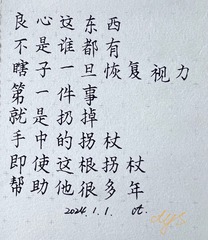 良心这东西
不是谁都有
瞎子一旦恢复视力
第一件事
就是扔掉
手中的拐杖
即使这根拐杖
帮助他很多年
2024.1.1.